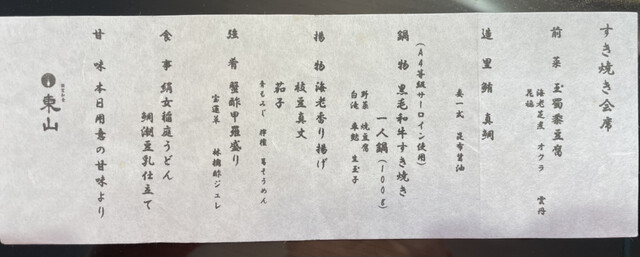 すき焼き会席
前菜 玉蜀黍豆腐
海老芝煮 オクラ 雲丹
花穂
造里 鮪 真鯛
妻一式 昆布醤油
(A4等級サーロイン使用)
鍋物 黒毛和牛すき焼き
一人鍋(100g)
野菜 焼豆腐
白滝 車麩 生玉子
揚物 海老香り揚げ
枝豆真丈
茄子
青もみじ 檸檬 葛そうめん
強肴 蟹酢甲羅盛り
宝蓮草 林檎酢ジュレ
食事 絹女稲庭うどん
鯛潮豆乳仕立て
甘味 本日用意の甘味より
東山